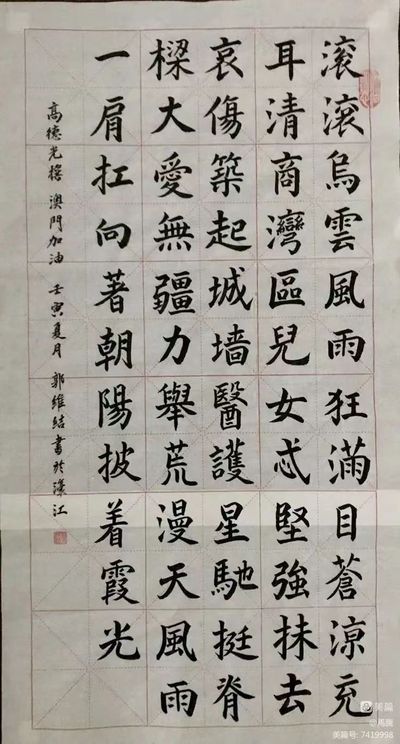 滚滚烏雲風雨狂滿目蒼涼充
耳清商灣區兒女忒堅強抹去
哀傷築起城墻醫護星馳挺脊
樑大愛無疆力舉荒漫天風雨
一肩扛向著朝陽披着霞光
高德光 澳門加油 壬寅夏月 郭維結書於濠江
美篇
美篇号: 7419998